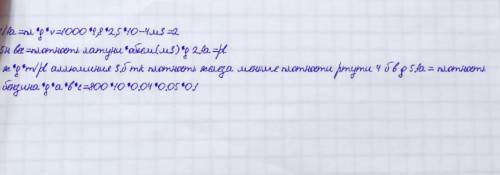 1 Fa=m*g*v=1000*9,8*2,5*10-4м3=2
5н вес=плотность латуни*абем(м3)*g 2 Fa=pl
ж*g*m/pl аллюминия 3,б тк плотность железа меньше плотности ртути 4 б в g 5 Fa= плотность
бензина*g*a*b*c=800*10*0,04*0,05*0,1